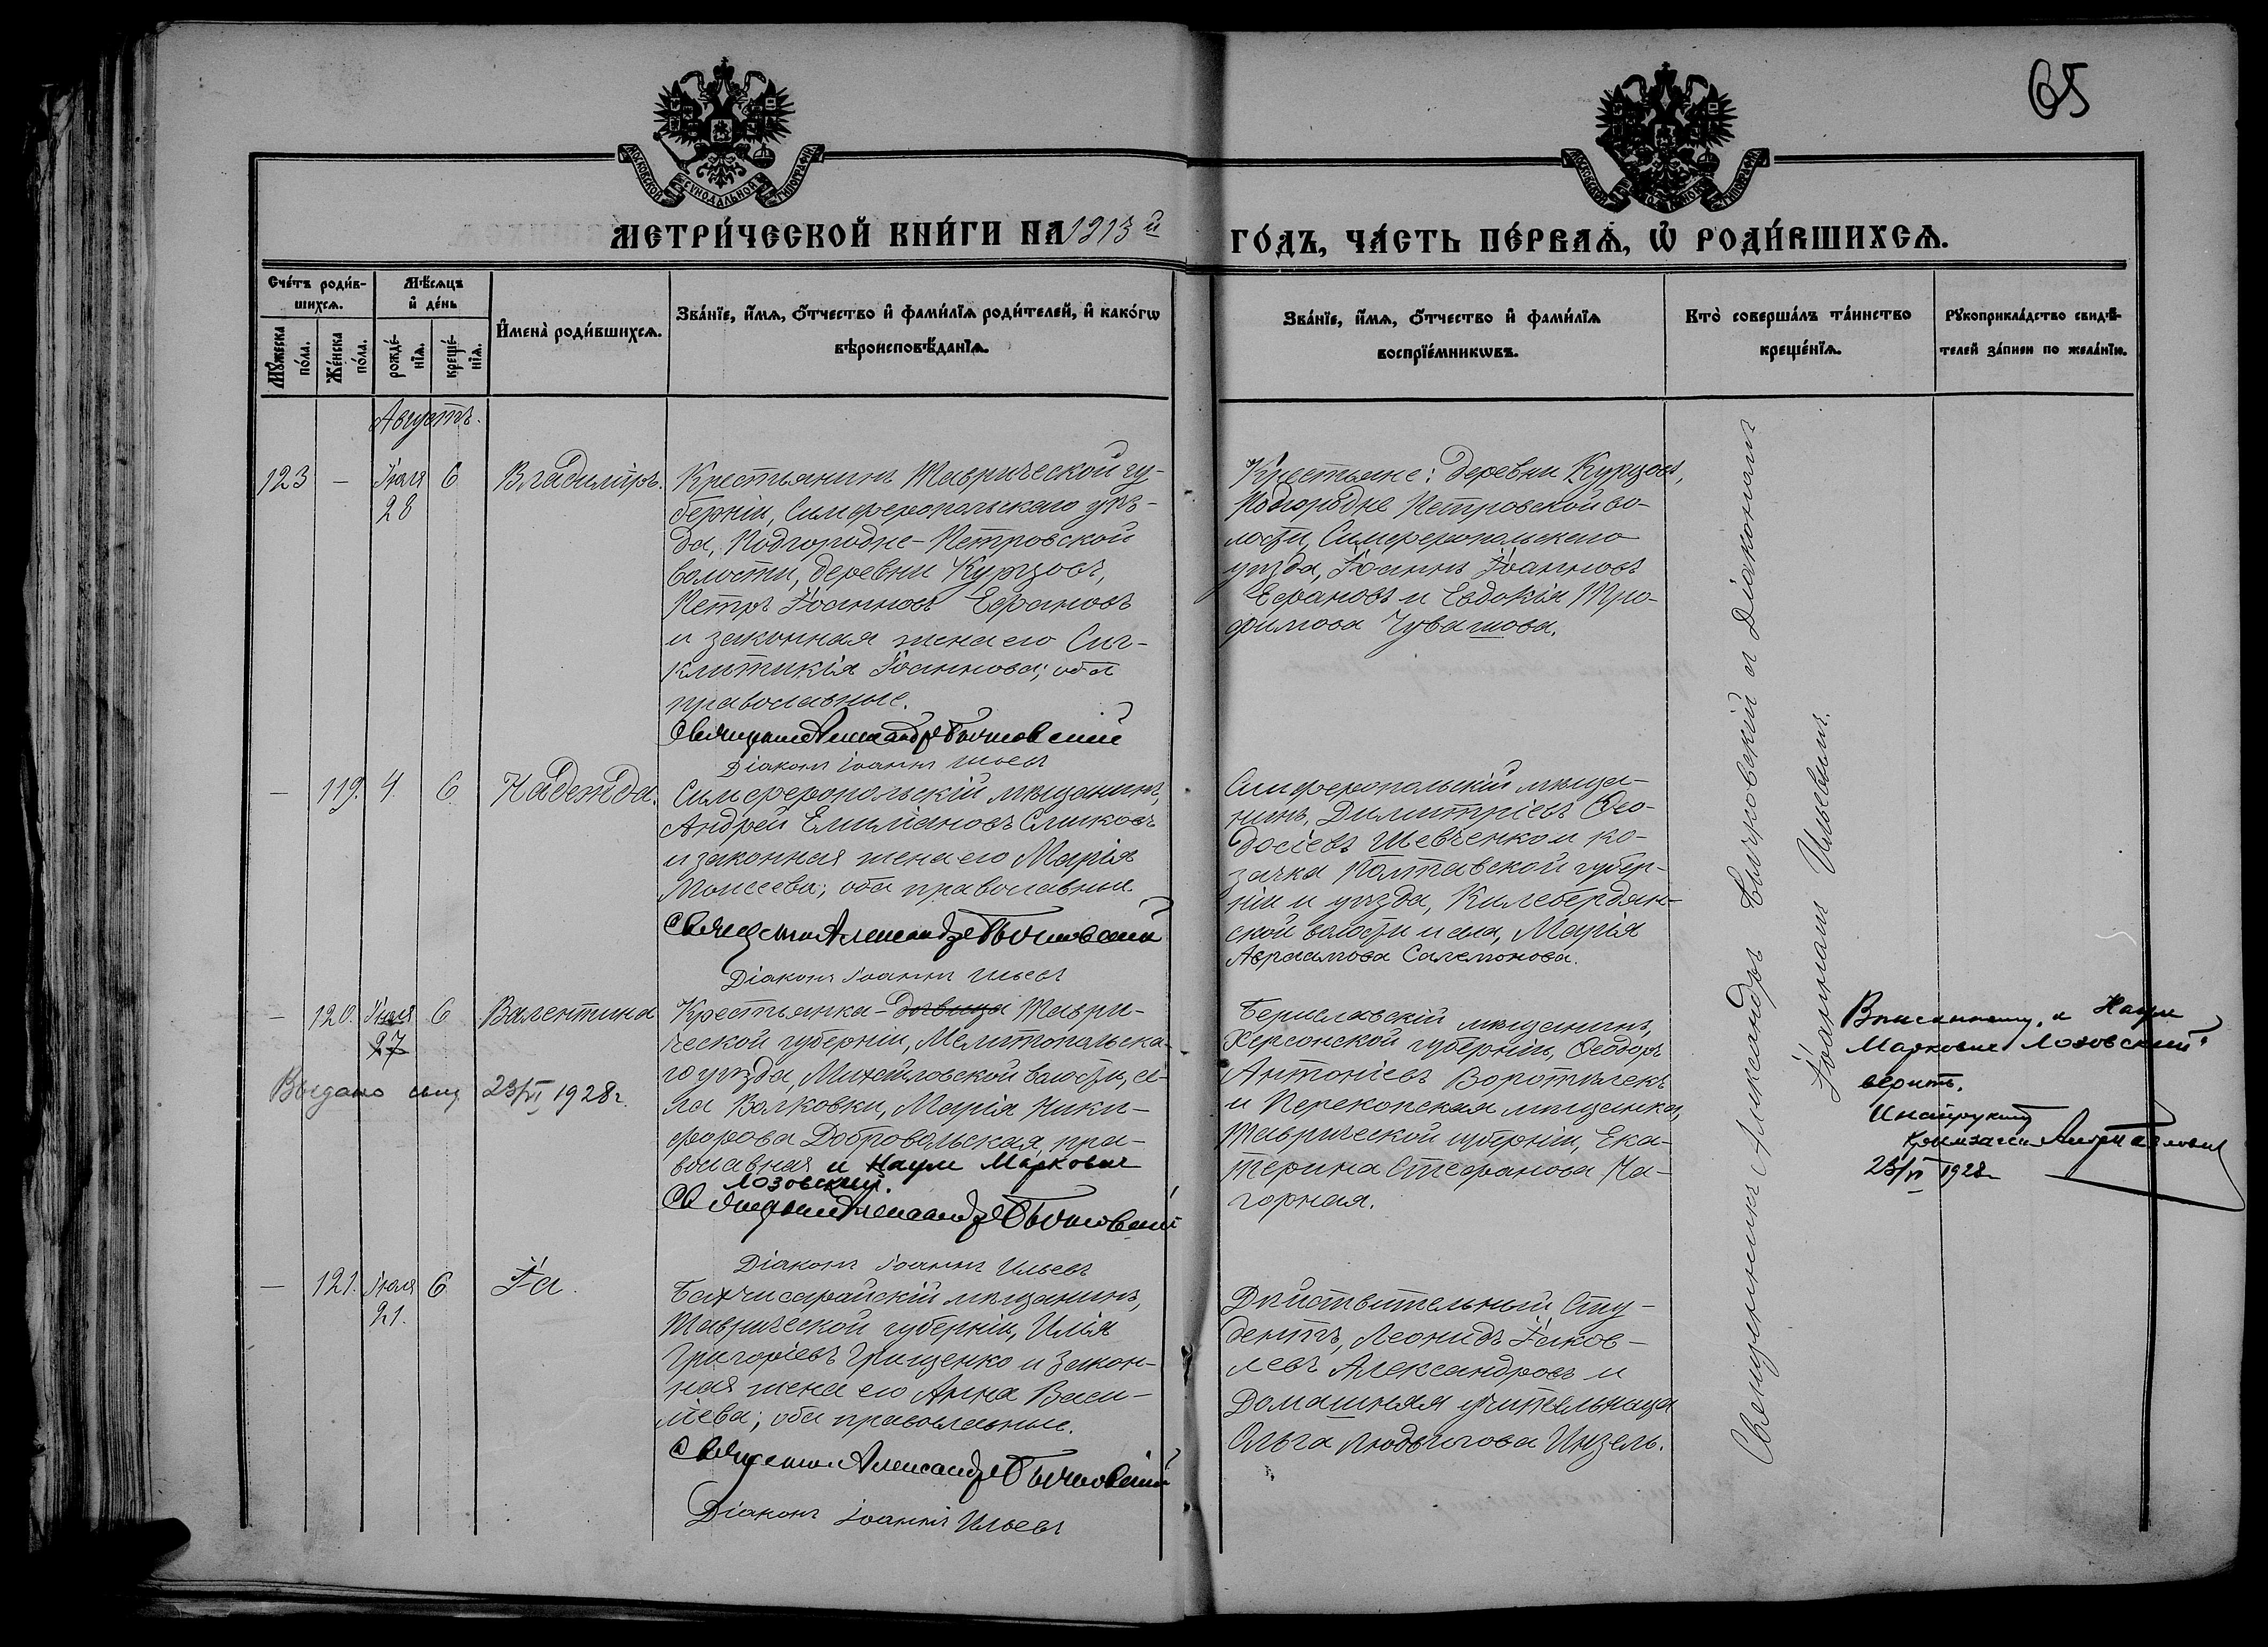 65
МОСКОВСКОЙ СѴНОДАЛЬНОЙ ТИПОГРАФІИ
МЕТРИ́ЧЕСКОЙ КНИ́ГИ НА 1913й
ГО́ДЪ, ЧА́СТЬ ПЕ́РВАѦ, Ѡ҆ РОДИ́ВШИХСѦ.
Сче́тъ роди́в-
шихсѧ.
Мꙋ́жеска по́ла.
Же́нска по́ла.
Мѣ́сѧцъ
и҆ де́нь
рожде́-
нїѧ.
креще́-
нїѧ.
И҆мена̀ роди́вшихсѧ.
Зва́нїе, и҆́мѧ, ѻ҆́тчество и҆ фами́лїѧ роди́телей, и҆ како́гѡ
вѣроисповѣ́данїѧ.
Зва́нїе, и҆́мѧ, ѻ҆́тчество и҆ фами́лїѧ
воспрїе́мникѡвъ.
Кто̀ соверша́лъ та́инство
креще́нїѧ.
Рꙋкоприкла́дство свидѣ́-
телей за́писи по жела́нїю.
Августъ.
123 — Іюля 28 6 Владиміръ.
Крестьянинъ Таврической гу-
берніи, Симферопольскаго уѣз-
да, Подгородне-Петровской
волости, деревни Курцовъ,
Петръ Іоанновъ Ефановъ
и законная жена его Син-
клитикія Іоаннова; оба
православные.
Священникъ Александръ Бычковскій
Діаконъ Іоаннъ Ильевъ
Крестьяне: деревни Курцовъ,
Подгородне Петровской во-
лости, Симферопольскаго
уѣзда, Іоаннъ Іоанновъ
Ефановъ и Евдокія Тро-
фимова Чувашова.
— 119. 4. 6 Надежда.
Симферопольскій мѣщанинъ,
Андрей Емиліановъ Слинковъ
и законная жена его Марія
Моисеева; оба православные
Священникъ Александръ Бычковскій
Діаконъ Іоаннъ Ильевъ
Симферопольскій мѣща-
нинъ, Димитріевъ Ѳео-
досіевъ Шевченко и ко-
зачка Полтавской губер-
ніи и уѣзда, Килебердян-
ской волости и села, Марія
Авраамова Саламонова.
— 120. Іюля 27 6 Валентина
Крестьянка-дѣвица Таври-
ческой губерніи, Мелитопольска-
го уѣзда, Михайловской волости, се-
ла Волковки, Марія Ники-
форова Добровольская, пра-
вославная и Наум Маркович
Лозовский.
Священникъ Александръ Бычковскій
Діаконъ Іоаннъ Ильевъ
Выдано свид. 23/VI 1928 г.
Бериславскій мѣщанинъ,
Херсонской губерніи, Ѳеодоръ
Антоніевъ Воротилекъ
и Перекопская мѣщанка,
Таврической губерніи, Ека-
терина Стефанова На-
горная.
и Наум
Маркович Лозовский"
верить.
23/VI 1928 г.
— 121. Іюля 21. 6 Іа.
Бахчисарайскій мѣщанинъ,
Таврической губерніи, Илія
Григоріевъ Грищенко и закон-
ная жена его Анна Васи-
ліева; оба православные.
Священникъ Александръ Бычковскій
Діаконъ Іоаннъ Ильевъ
Дѣйствительный сту-
дентъ, Леонидъ Іаков-
левъ Александровъ и
Домашняя учительница
Ольга Людвигова Инзель.
Священникъ Александръ Бычковскій и Діаконъ
Іоаннъ Ильевъ.